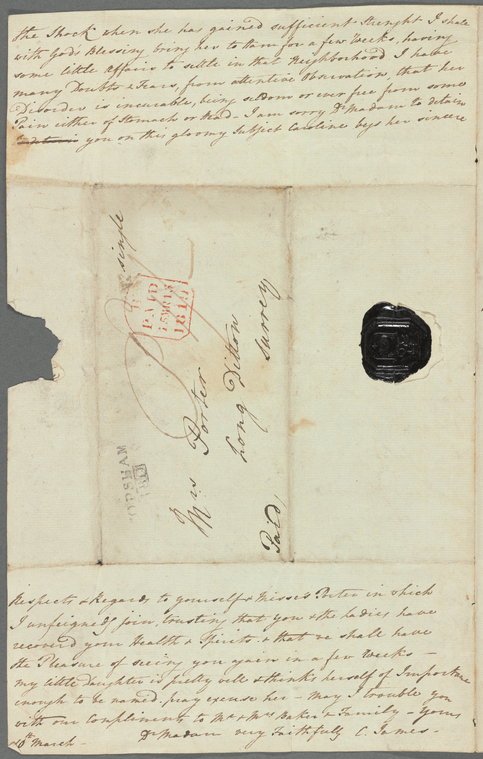 the Shock when she has gained sufficient Strenght I shall
with God's Blessing bring her to Ham for a few Weeks, having
some little Affairs to settle in that Neighborhood I have
many Doubts & Fears, from attentive Observation, that her
Disorder is incurable, being seldom or ever free from some
Pain either of Stomach or Head - I am sorry Dr Madam to detain
you on this gloomy Subject Caroline begs her sincere
single
PAID
1819
Mrs Porter
Long Ditton
Surrey
Paid
TOPSHAM
Respects & Regards to yourself & Misses Porter in which
I unfeignedly join, trusting that you & the Ladies have
recover'd your Health & Spirits & that we shall have
the Pleasure of seeing you again in a few Weeks -
my little Daughter is pretty well & thinks herself of Importance
enough to be named, pray excuse her - May I trouble you
with our Compliments to Mr & Mrs Baker & Family - Yours
March - Dr Madam very Faithfully C. James -